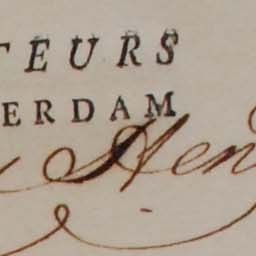 TEURS
ERDAM
Hen